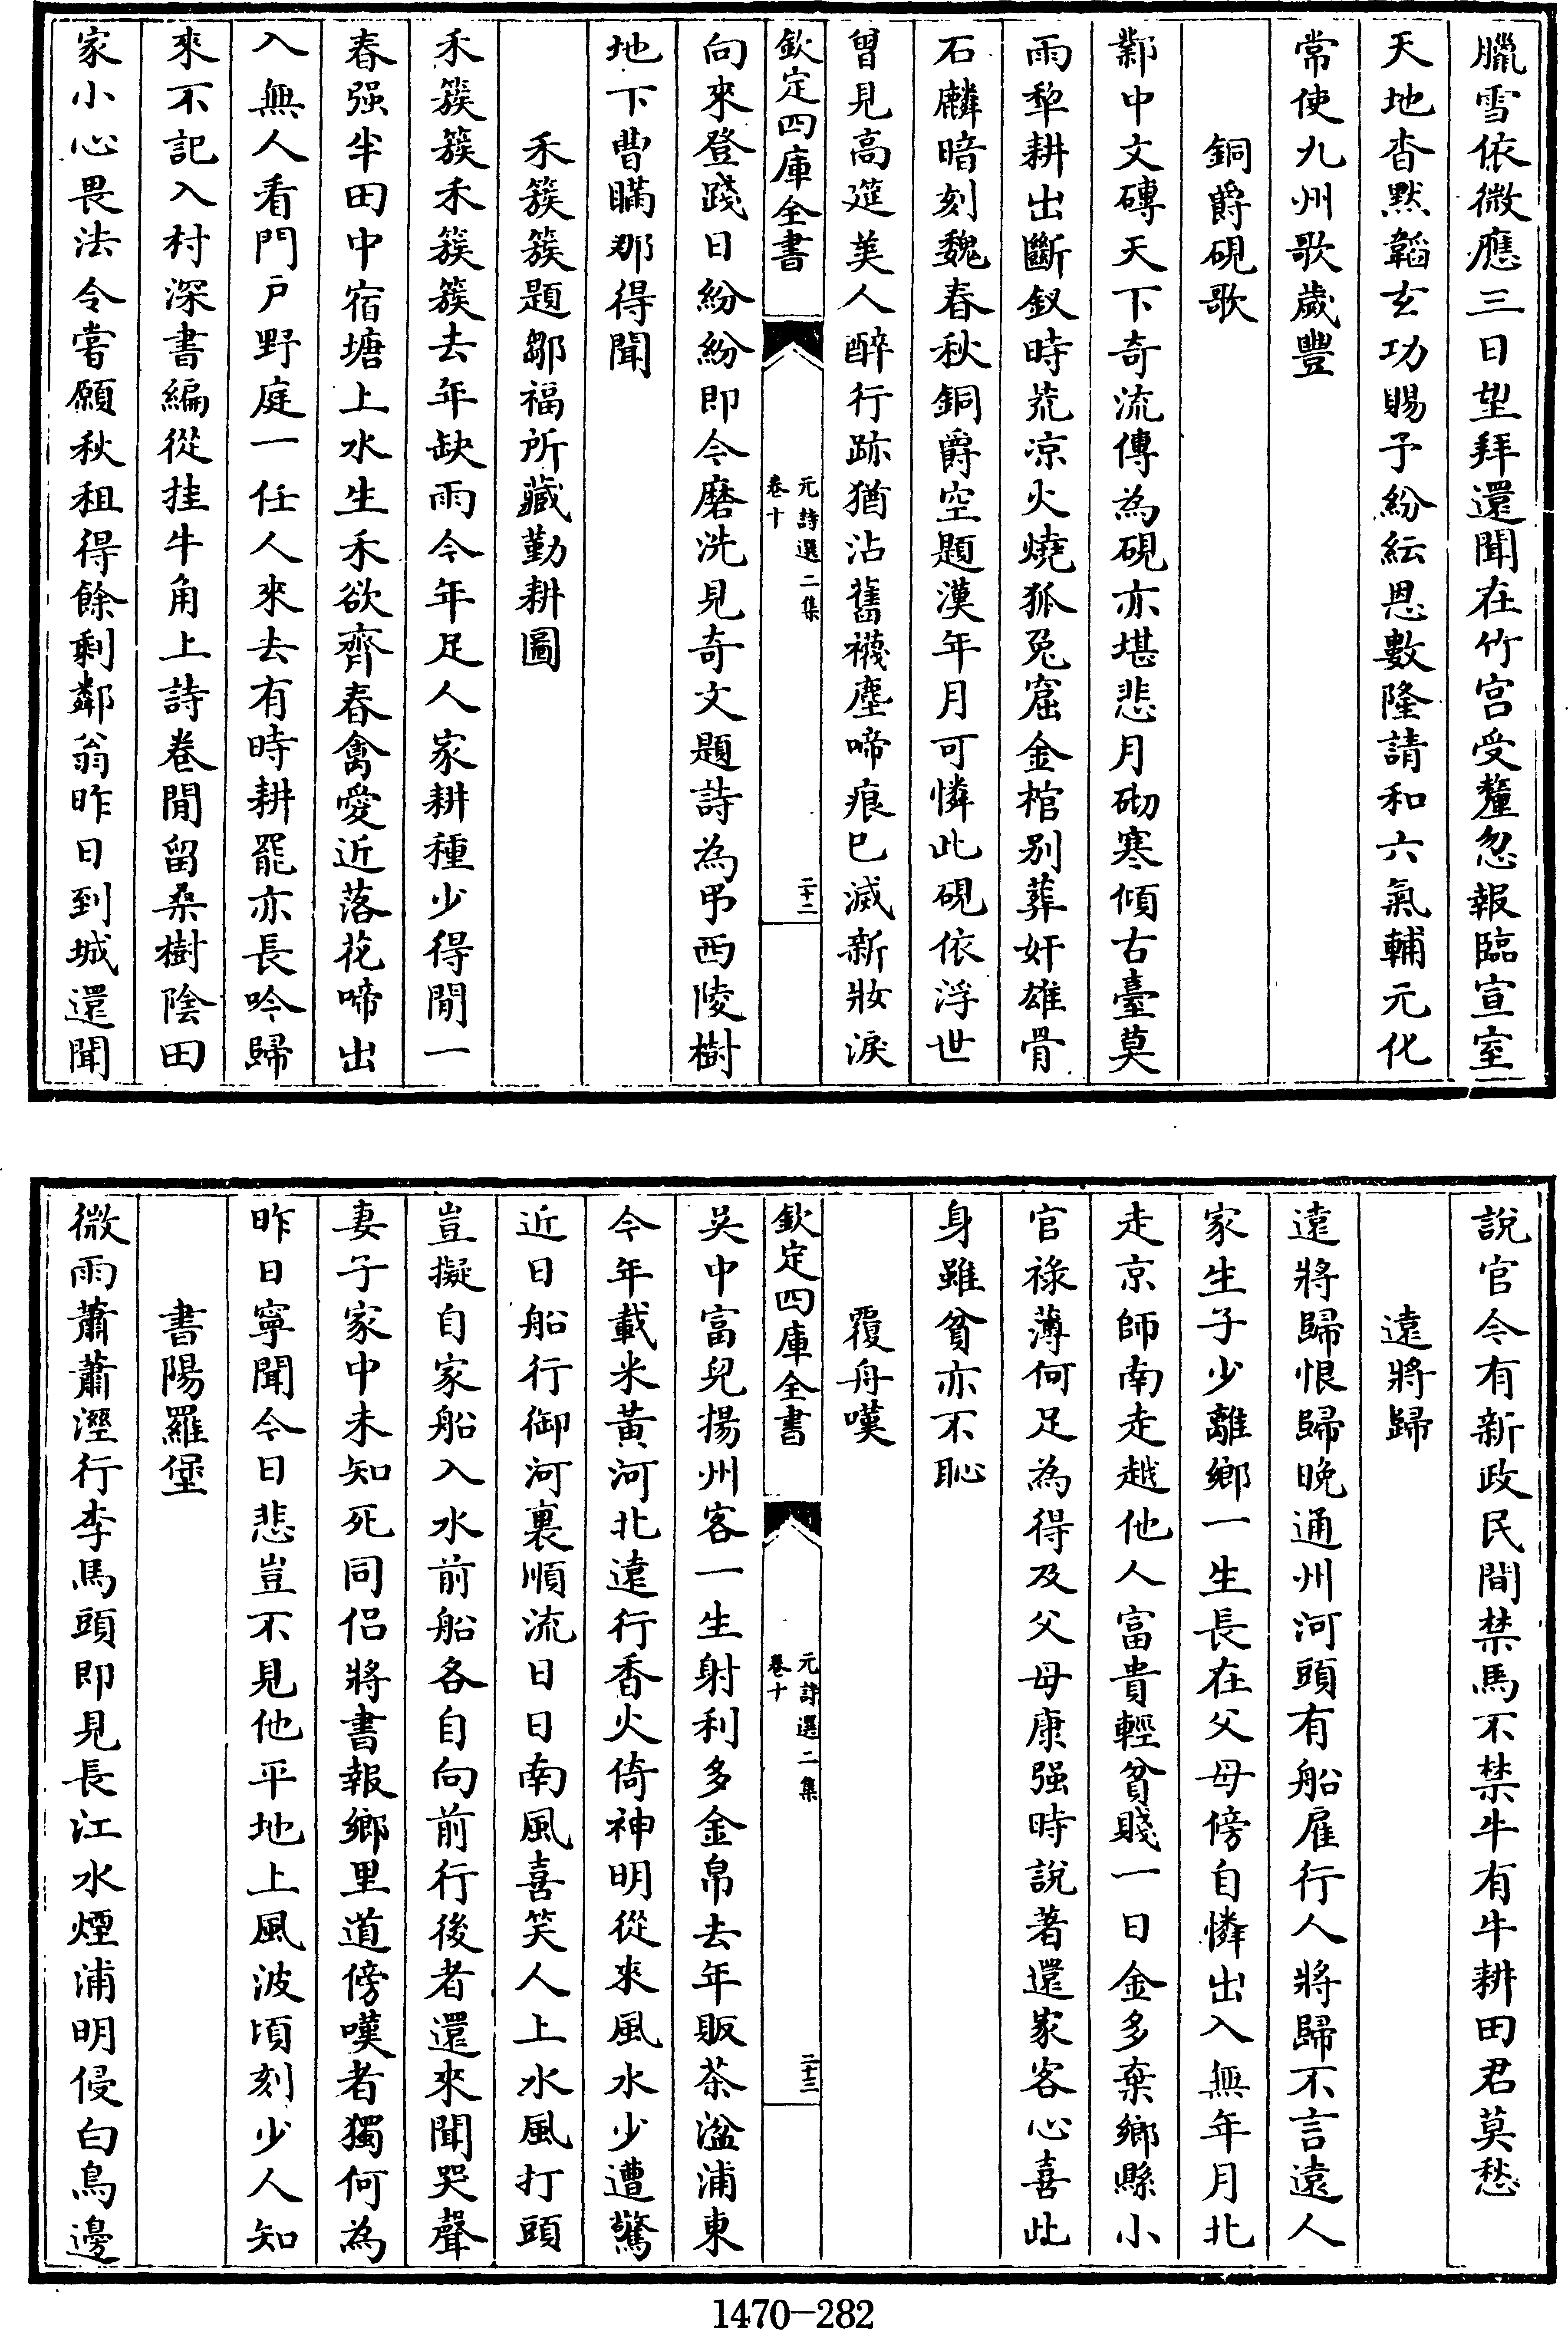 臘雪依微應三日望拜還聞在竹宫受釐忽報臨宣室
天地杳默韜玄功賜予紛紜恩數隆請和六氣輔元化
常使九州歌歲豐
銅爵硯歌
鄴中文磚天下奇流傳為硯亦堪悲月砌寒傾古臺莫
雨犂耕出斷釵時荒凉火燒狐兔窟金棺别葬奸雄骨
石麟暗刻魏春秋銅爵空題漢年月可憐此硯依浮世
曾見高筵美人醉行跡猶沾舊襪塵啼痕已滅新妝淚
欽定四庫全書
元詩選二集
卷十
二十二
向來登踐日紛紛即今磨洗見奇文題詩為弔西陵樹
地下曹瞞那得聞
禾簇簇題鄒福所藏勤耕圖
禾簇簇禾簇簇去年缺雨今年足人家耕種少得閒一
春强半田中宿塘上水生禾欲齊春禽愛近落花啼出
入無人看門戸野庭一任人來去有時耕罷亦長吟歸
來不記入村深書編從挂牛角上詩卷閒留桑樹陰田
家小心畏法令嘗願秋租得餘剩鄰翁昨日到城還聞
說官令有新政民間禁馬不禁牛有牛耕田君莫愁
遠將歸
遠將歸恨歸晚通州河頭有船雇行人將歸不言遠人
家生子少離鄉一生長在父母傍自憐出入無年月北
走京師南走越他人富貴輕貧賤一日金多棄鄉縣小
官祿薄何足為得及父母康强時說著還家客心喜此
身雖貧亦不恥
覆舟嘆
欽定四庫全書
元詩選二集
卷十
二十三
吳中富兒揚州客一生射利多金帛去年販茶湓浦東
今年載米黃河北遠行香火倚神明從來風水少遭驚
近日船行御河裏順流日日南風喜笑人上水風打頭
豈擬自家船入水前船各自向前行後者還來聞哭聲
妻子家中未知死同侣將書報鄉里道傍嘆者獨何為
昨日寧聞今日悲豈不見他平地上風波頃刻少人知
書陽羅堡
微雨蕭蕭溼行李馬頭即見長江水煙浦明侵白鳥邊
1470-282